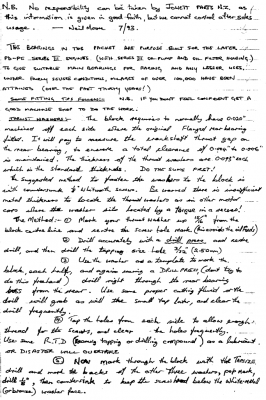 N.B. No responsibility can be taken by JOWETT PARTS N.Z. as
this information is given in good faith, but we cannot control after sales
usage. Neil Moore 7/93.
THE BEARINGS IN THE PACKET ARE PURPOSE BUILT FOR THE LATER
TO SUIT SUITABLE MAIN BEARINGS FOR RACING, AND ALL LESSER USES,
UNDER SEVERE CONDITIONS, MILEAGES OF OVER 100,000 HAVE BEEN
ATTAINED (OVER THE PAST THIRTY YEARS!)
SOME FITTING TIPS FOLLOWING: N.B. IF YOU DON'T FEEL COMPETENT GET A
GOOD MACHINE SHOP TO DO THE WORK.
THRUST WASHERS: The block requires to normally have 0.020"
machined off each side where the original flanged rear bearing
fitted. It will pay to measure the crankshaft thrust gap on
the rear bearing, to ensure a total clearance of 0.004" to 0.006"
is maintained. The thickness of the thrust washers are 0.095" each
which is the standard thickness. DO THE SUMS FIRST!
The suggested method to fasten the washers to the block is
with countersunk 1/8" Whitworth screws. Be warned there is insufficient
metal thickness to locate the thrust washers as in other motor
cars where the washer is located by a tongue in a recess!
The Method:- ① Mark your thrust washer up from the
block centre line and centre the screw hole mark
② Drill accurately with a drill press and centre
drill, and then drill the tapping size hole 3/32" (2.50mm)
③ Use the washer as a template to mark the
block, each half, and again using a DRILL PRESS, (don't try to
do this freehand) drill right through the rear bearing
from the rear. Use proper cutting fluid or the
drill will grab as will the small tap later, and clear the
drill frequently.
④ Tap the holes from each side to allow enough
thread for the screws, and clear the holes frequently.
Use some R.T.D (Rocol tapping or drilling compound) as a lubricant
OR DISASTER WILL OVERTAKE.
⑤ NOW mark through the block with the TAPPING
drill and mark the backs of the other three washers, pop mark,
drill 1/8", then countersink to keep the screwhead below the whitemetal
(or bronze) washer face.